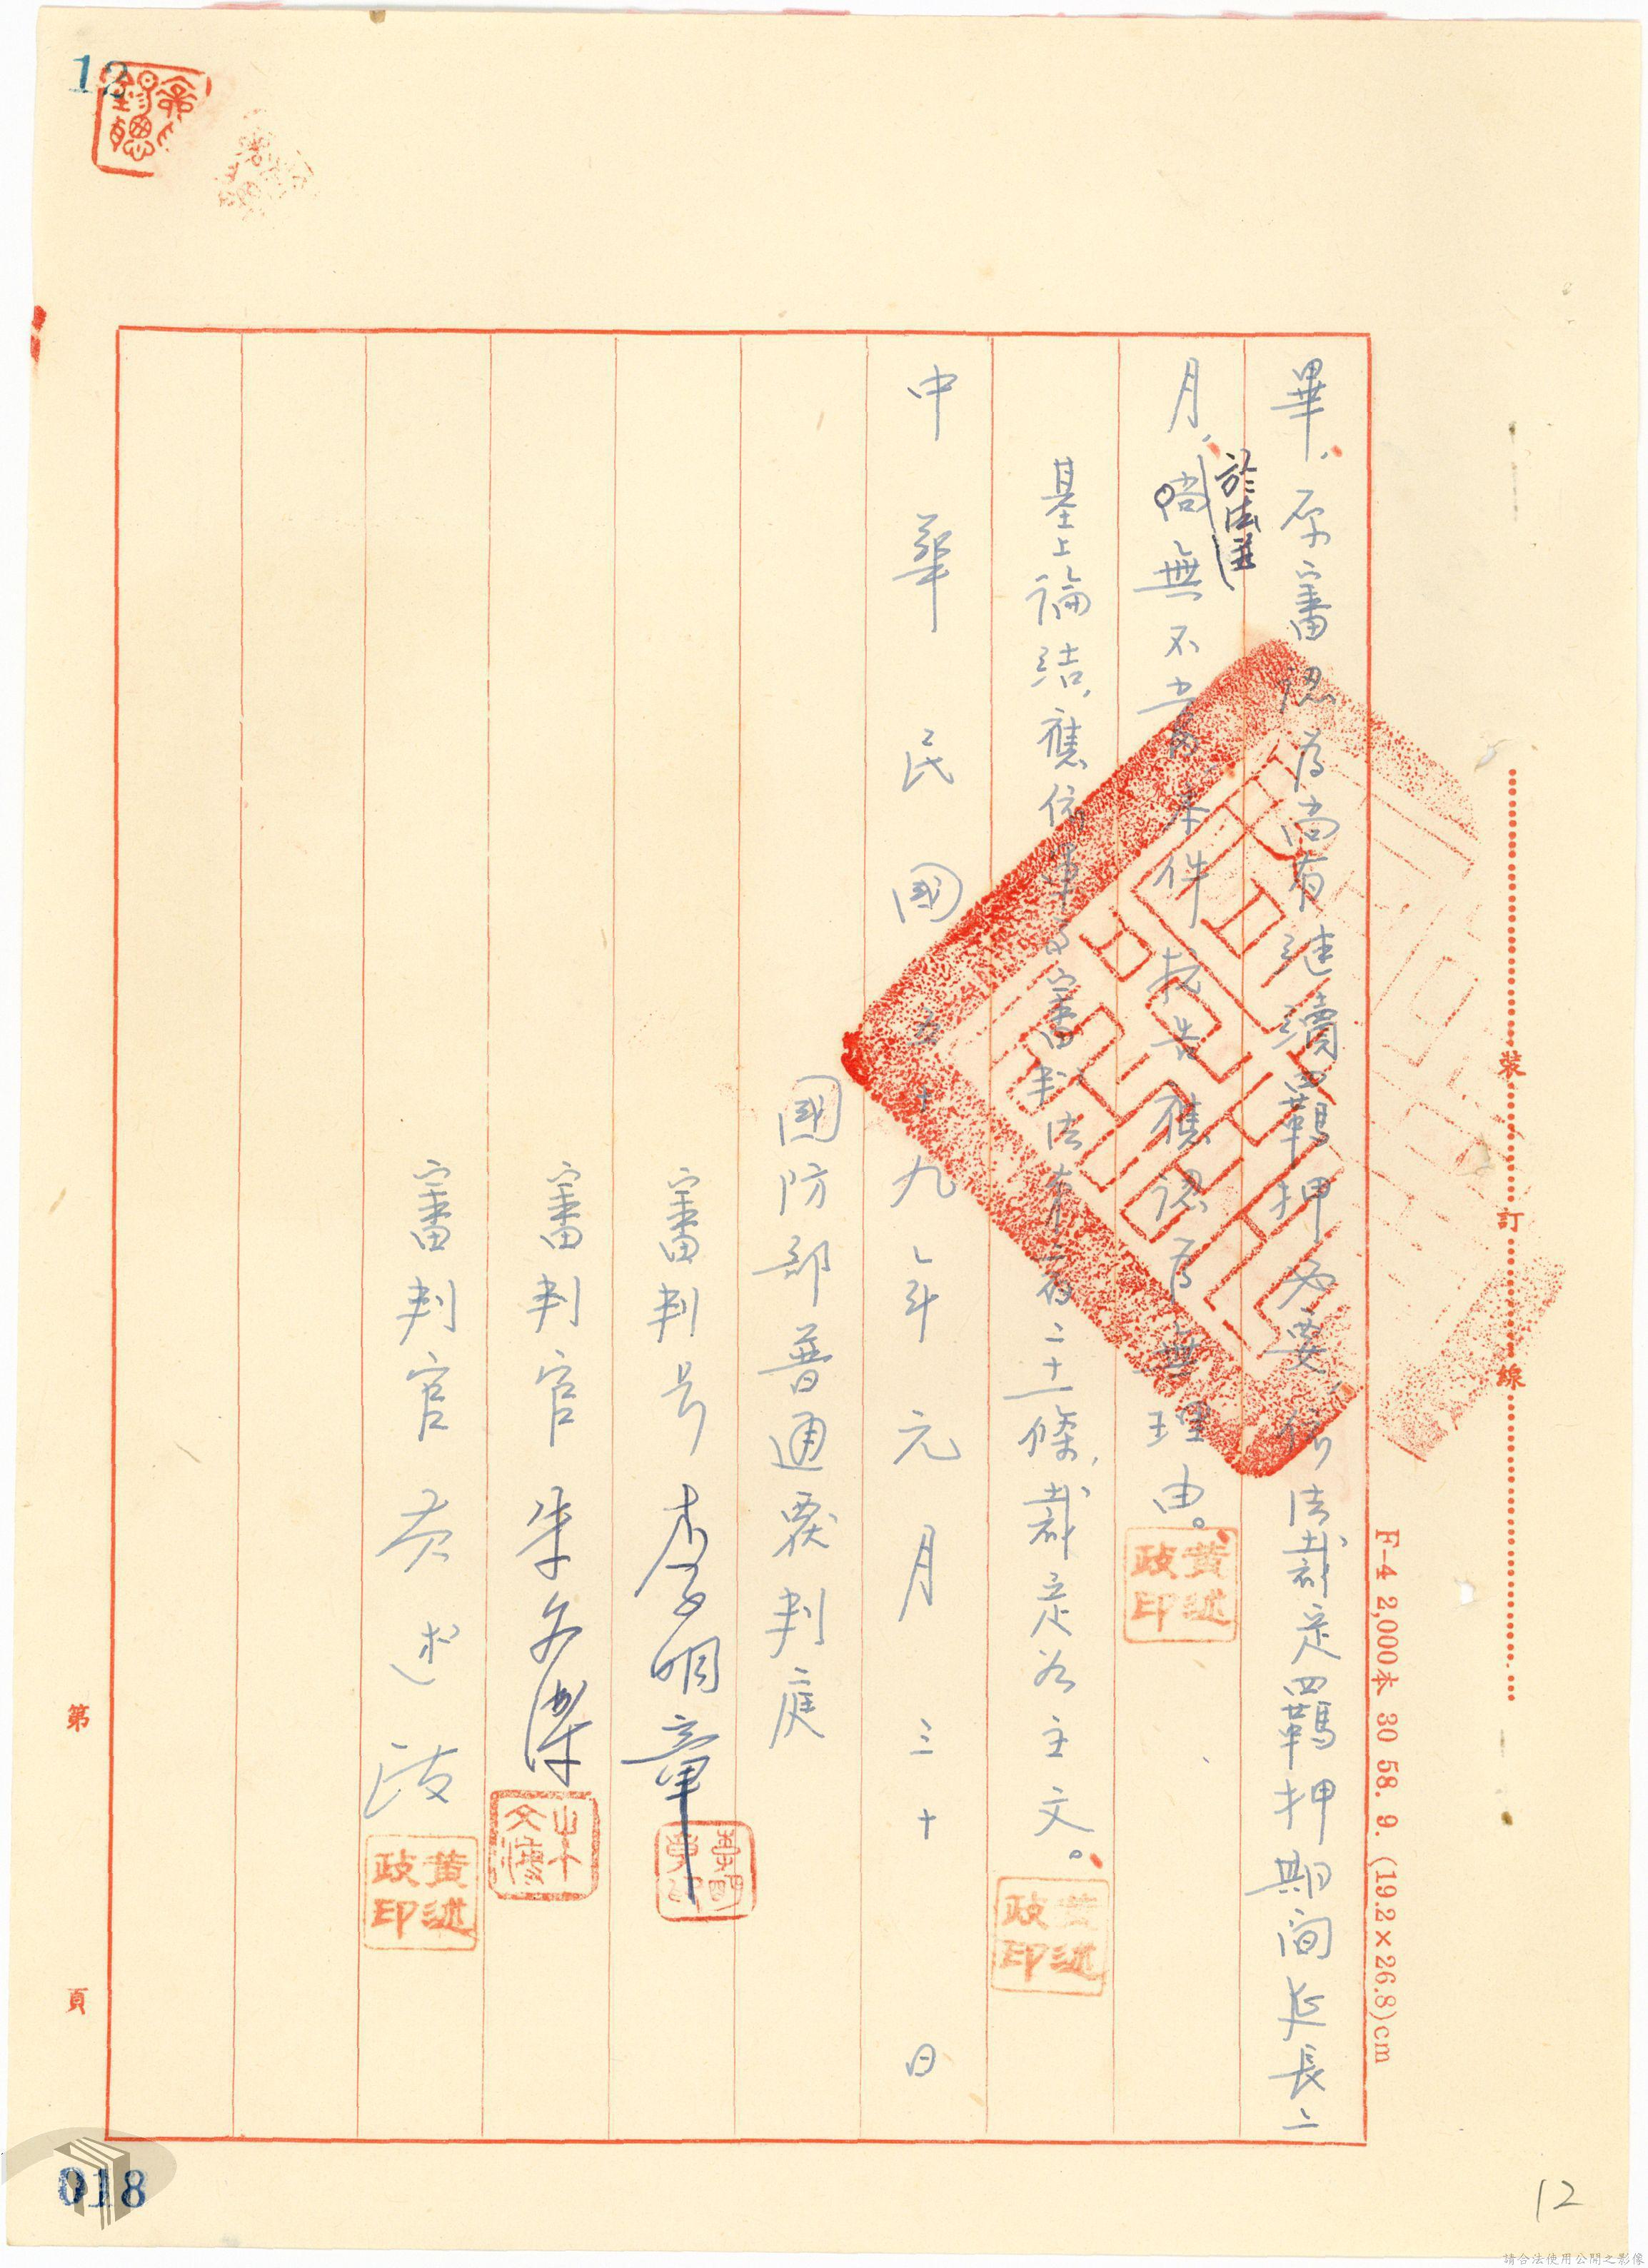 畢，原審認為尚有繼續羈押必要，依法裁定羈押期間延長二
月，尚無不當，本件抗告應認為無理由。
於法並
基上論結，應依軍事審判法第二百二十一條，裁定如主文。
中華民國五十九年元月三十日
國防部普通覆判庭
審判長李明章
審判官朱文
審判官黃述政
黃述政印
黃述政印
黃述政印
裝
訂
線
F-4 2,000本 30 58. 9. (19.2×26.8)cm
第
頁
12
018
12
請合法使用公開之影像